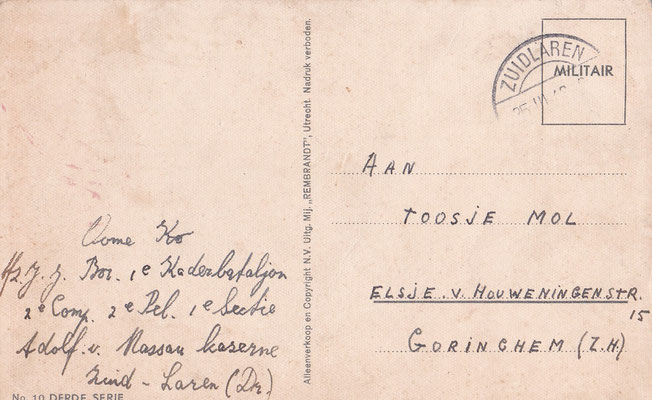 Oome Ko
Bor. 1e Kaderbataljon
2e Comp. 2e Pel. 1e Sectie
Adolf v. Nassau kaserne
Zuid-Laren (Dr.)
No. 10 DERDE SERIE
Alleenverkoop en Copyright N.V. Uitg. Mij. „REMBRANDT”, Utrecht. Nadruk verboden.
ZUIDLAREN
MILITAIR
AAN
TOOSJE MOL
ELSJE. V. HOUWENINGENSTR.
15
GORINCHEM (Z.H.)